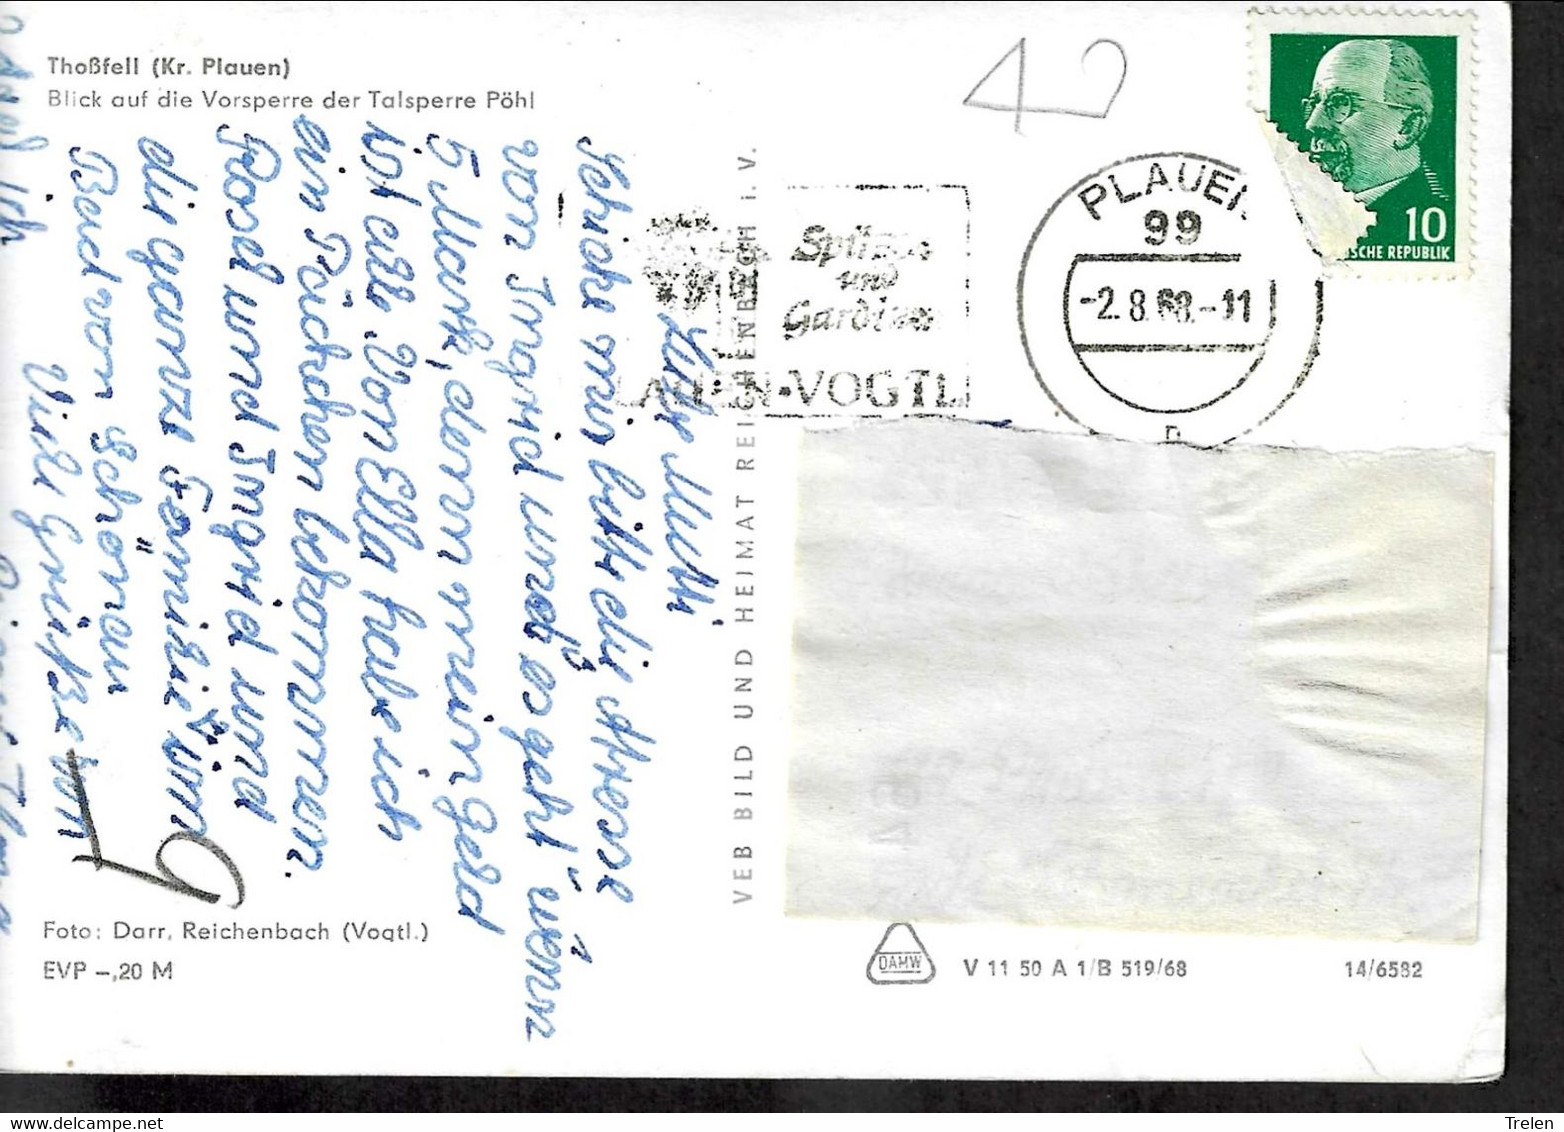 Thoßfell (Kr. Plauen)
Blick auf die Vorsperre der Talsperre Pöhl
Liebe Mutti
schicke mir bitte die Adresse
von Ingrid und es geht wenn
5 Mark, denn mein Geld
ist alle. Von Ella habe ich
ein Päckchen bekommen.
Rosel und Ingrid und
die ganze Familie
Bad von Schönau
Viele Grüße von
ich
VEB BILD UND HEIMAT REICHENBACH i. V.
und
Gardinen
PLAUEN·VOGTL
PLAUEN
99
-2.8.68.-11
10
SCHE REPUBLIK
9
Foto: Darr, Reichenbach (Vogtl.)
EVP –,20 M
DAMW
V 11 50 A 1/B 519/68
14/6582
Trelen